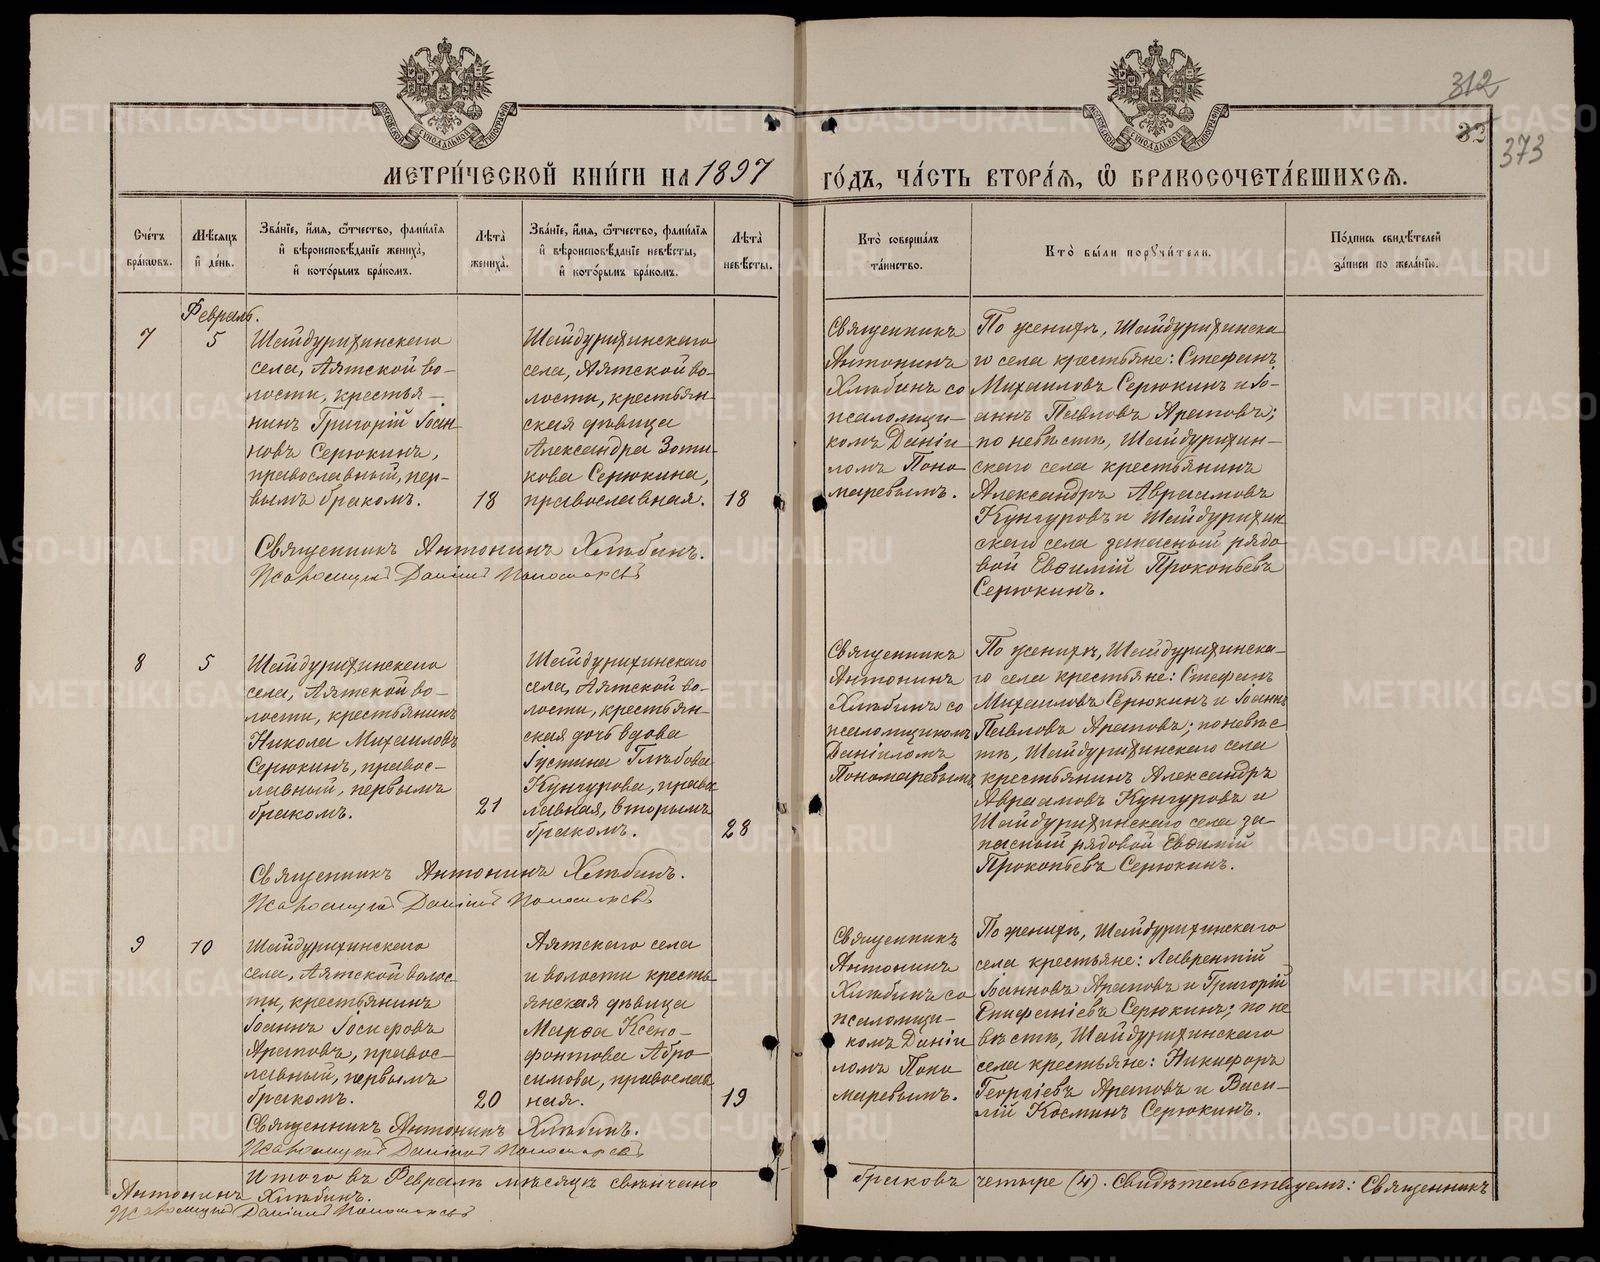 312
32
373
МЕТРИ́ЧЕСКОЙ КНИ́ГИ НА 1897 ГО́ДЪ, ЧА́СТЬ ВТОРА́Я, Ѽ БРАКОСОЧЕТА́ВШИХСЯ.
Сче́тъ
бра́ковъ.
Мѣ́сяцъ
и҆ де́нь.
Зва́нїе, и҆́мя, ѻ҆́тчество, фами́лїя
и҆ вѣроисповѣ́данїе жениха̀,
и҆ кото́рымъ бра́комъ.
Лѣта̀
жениха̀.
Зва́нїе, и҆́мя, ѻ҆́тчество, фами́лїя
и҆ вѣроисповѣ́данїе невѣ́сты,
и҆ кото́рымъ бра́комъ.
Лѣта̀
невѣ́сты.
Кто̀ соверша́лъ
та́инство.
Кто̀ бы́ли порꙋчи́тели.
По́дпись свидѣ́телей
за́писи по жела́нїю.
Февраль.
7
5
Шайдурихинскаго
села, Аятской во-
лости, крестья-
нинъ Григорій Іоан-
новъ Серюкинъ,
православный, пер-
вымъ бракомъ.
18
Шайдурихинскаго
села, Аятской во-
лости, крестьян-
ская дѣвица
Александра Зоти-
кова Серюкина,
православная.
18
Священникъ
Антонинъ
Хлѣбинъ со
псаломщи-
комъ Даніи
ломъ Поно
маревымъ.
По женихѣ, Шайдурихинска
го села крестьяне: Стефанъ
Михаиловъ Серюкинъ и Іо-
аннъ Павловъ Араповъ;
по невѣстѣ, Шайдурихин-
скаго села крестьянинъ
Александръ Авраамовъ
Кунгуровъ и Шайдурихин
скаго села запасный рядо
вой Евѳимій Прокопьевъ
Серюкинъ.
Священникъ Антонинъ Хлѣбинъ.
Псаломщикъ Даніилъ Пономаревъ
8
5
Шайдурихинскаго
села, Аятской во-
лости, крестьянинъ
Никола Михаиловъ
Серюкинъ, правос-
лавный, первымъ
бракомъ.
21
Шайдурихинскаго
села, Аятской во-
лости, крестьян-
ская дочь вдова
Іустина Глѣбова
Кунгурова, право
лавная, вторымъ
бракомъ.
28
Священникъ
Антонинъ
Хлѣбинъ со
псаломщикомъ
Даніиломъ
Пономаревымъ
По женихѣ, Шайдурихинска-
го села крестьяне: Стефанъ
Михаиловъ Серюкинъ и Іоаннъ
Павловъ Араповъ; по невѣс
тѣ, Шайдурихинскаго села
крестьянинъ Александръ
Авраамовъ Кунгуровъ и
Шайдурихинскаго села за-
пасный рядовой Евѳимій
Прокопьевъ Серюкинъ.
Священникъ Антонинъ Хлѣбинъ.
Псаломщикъ Даніилъ Пономаревъ
9
10
Шайдурихинскаго
села, Аятской волос-
ти, крестьянинъ
Іоаннъ Іосифовъ
Араповъ, правос-
лавный, первымъ
бракомъ.
20
Аятскаго села
и волости кресть-
янская дѣвица
Марѳа Ксено-
фонтова Абро-
симова, православ
ная.
19
Священникъ
Антонинъ
Хлѣбинъ со
псаломщи-
комъ Даніи
ломъ Поно
маревымъ.
По женихѣ, Шайдурихинскаго
села крестьяне: Лаврентій
Іоанновъ Араповъ и Григорій
Епифаніевъ Серюкинъ; по не
вѣстѣ, Шайдурихинскаго
села крестьяне: Никифоръ
Георгіевъ Араповъ и Васи-
лій Косминъ Серюкинъ.
Священникъ Антонинъ Хлѣбинъ.
Псаломщикъ Даніилъ Пономаревъ
Итого въ Февралѣ мѣсяцѣ свѣнчано браковъ четыре (4). Свидѣтельствуемъ: Священникъ
Антонинъ Хлѣбинъ.
Псаломщикъ Даніилъ Пономаревъ
METRIKI.GASO-URAL.RU